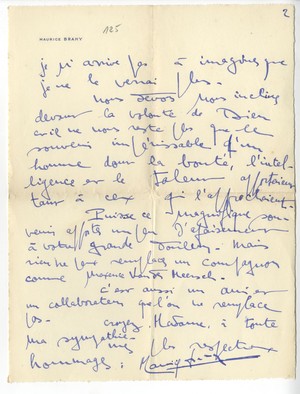 2
125
MAURICE BRAHY
je n'arrive pas à imaginer que
je ne le verrai plus.
nous devons nous incliner
devant la volonté de Dieu
car il ne nous reste plus que le
souvenir d'un
homme dont la bonté, l'intel-
ligence et le talent
tant à ceux qui l'approchaient.
Puisse ce magnifique sou-
venir un peu d'apaisement
à votre grande douleur. Mais
rien ne peut remplacer un compagnon
comme Maxence Van der Meersch.
c'est aussi un ami et
un collaborateur qu'on ne remplace
pas.
croyez, Madame, à toute
ma sympathie et à mes respectueux
hommages.